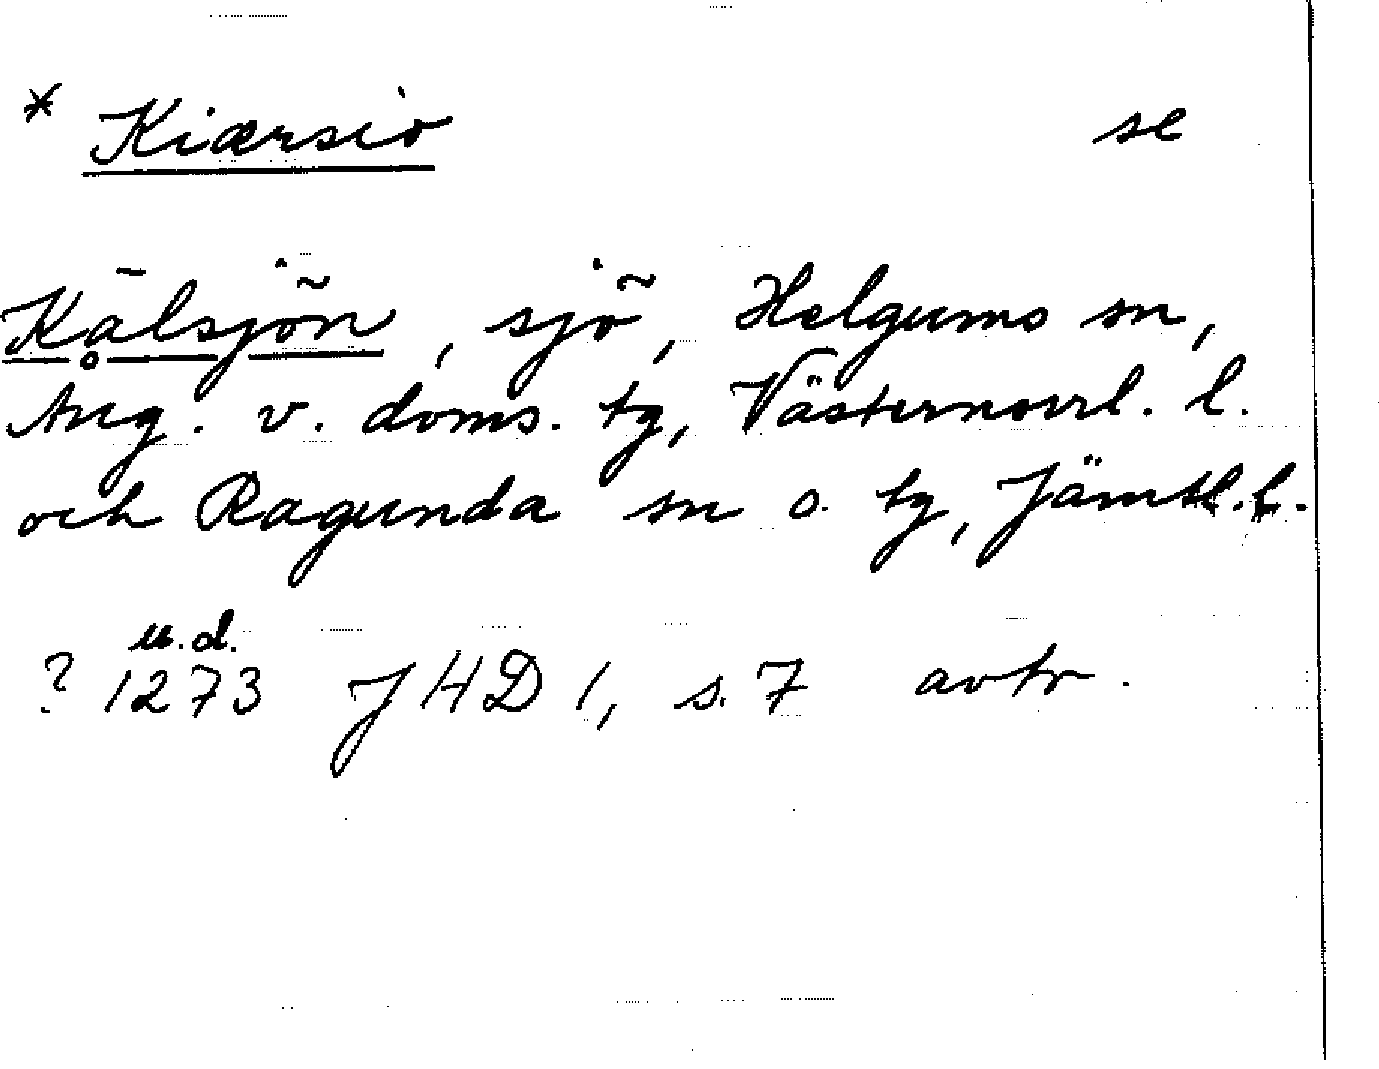 * Kiærsio se
Kälsjön, sjö, Helgums sn,
Ång. v. doms. tg, Västernorrl. l.
och Ragunda sn o. tg, Jämtl. l.
u.d.
? 1273 JHD 1, s. 7 avtr.